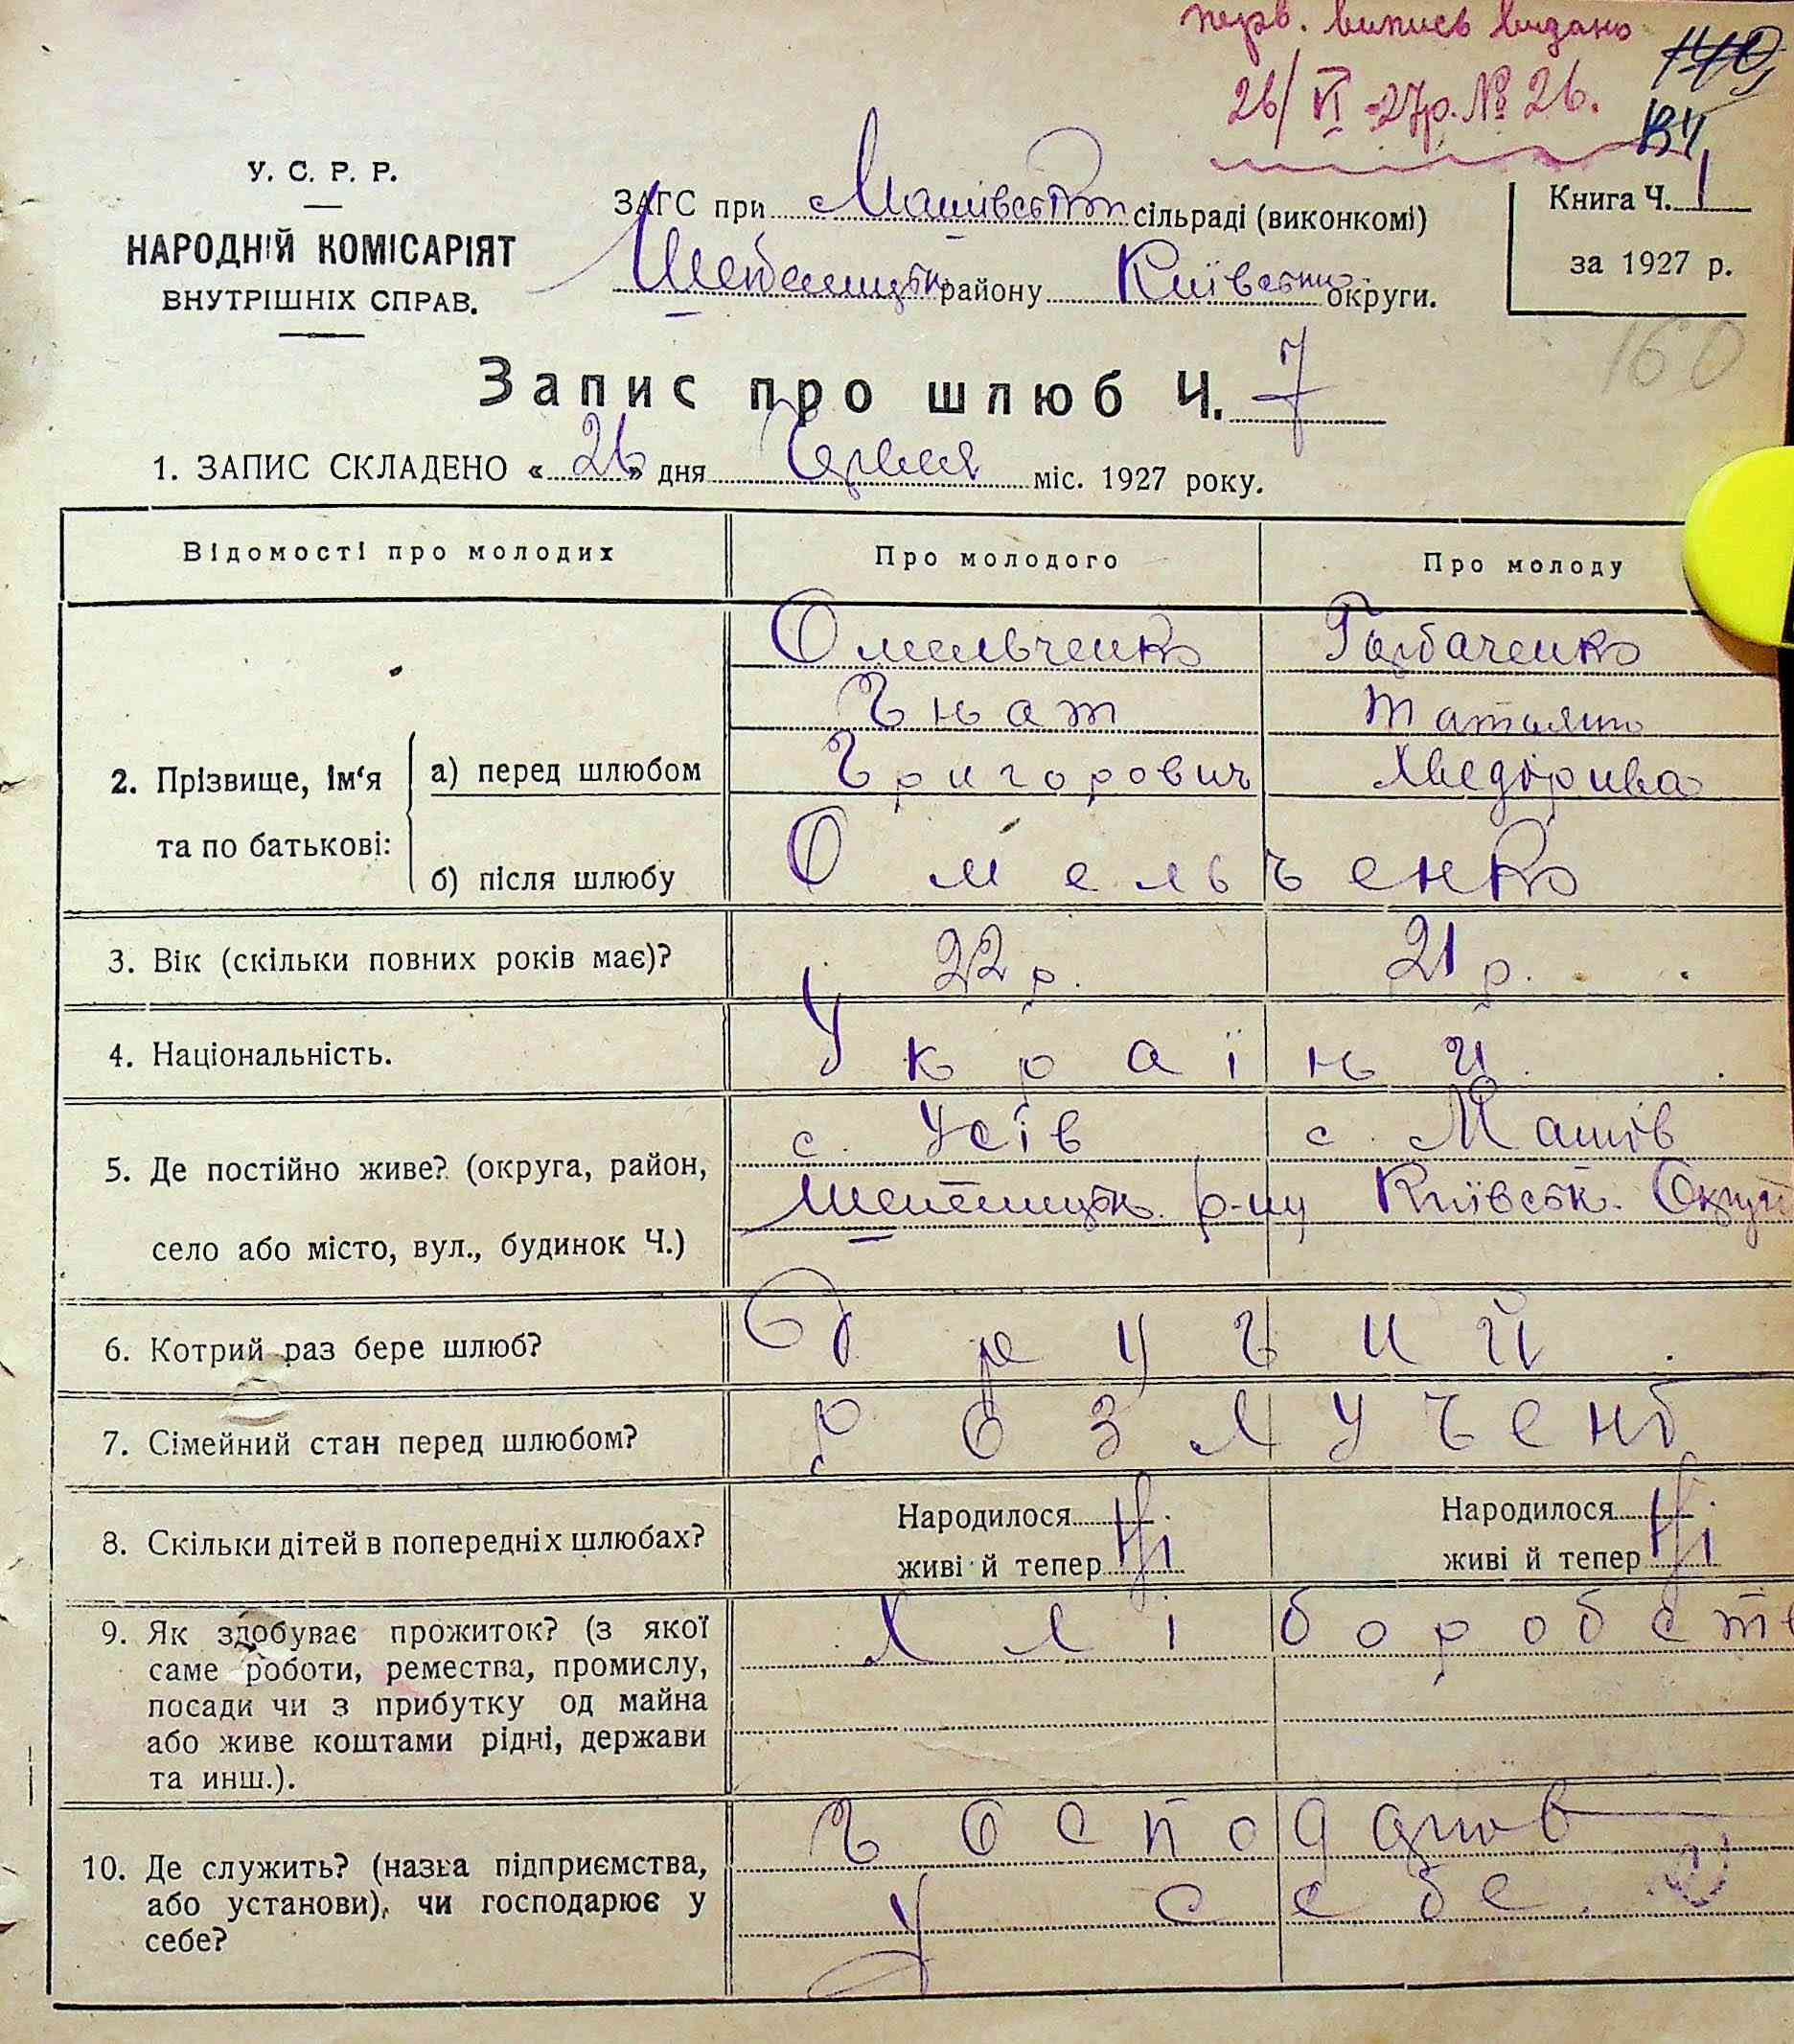 перв. випись видано
140
26/VI-27р. № 26.
У. С. Р. Р.
НАРОДНІЙ КОМІСАРІЯТ
ВНУТРІШНІХ СПРАВ.
ЗАГС при Машівській сільраді (виконкомі)
району Київської округи.
Книга Ч. 1
за 1927 р.
160
Запис про шлюб Ч. 7
1. ЗАПИС СКЛАДЕНО «26» дня Червня міс. 1927 року.
Відомості про молодих Про молодого Про молоду
Омельченко Горбаченко
Гнат Татьяна
2. Прізвище, ім‘я а) перед шлюбом Григорович Хведорівна
та по батькові:
б) після шлюбу Омельченко
3. Вік (скільки повних років має)? 22 р. 21 р.
4. Національність. Україн ц.
с. Усів с. Машів
5. Де постійно живе? (округа, район, Шепелицьк. р-ну Київськ. Округи
село або місто, вул., будинок Ч.)
6. Котрий раз бере шлюб? Другий.
7. Сімейний стан перед шлюбом? Розлучені
8. Скільки дітей в попередніх шлюбах? Народилося Ні Народилося Ні
живі й тепер живі й тепер
9. Як здобуває прожиток? (з якої Хліборобств
саме роботи, ремества, промислу,
посади чи з прибутку од майна
або живе коштами рідні, держави
та инш.).
10. Де служить? (назва підприємства,
або установи), чи господарює у У себе.
себе?